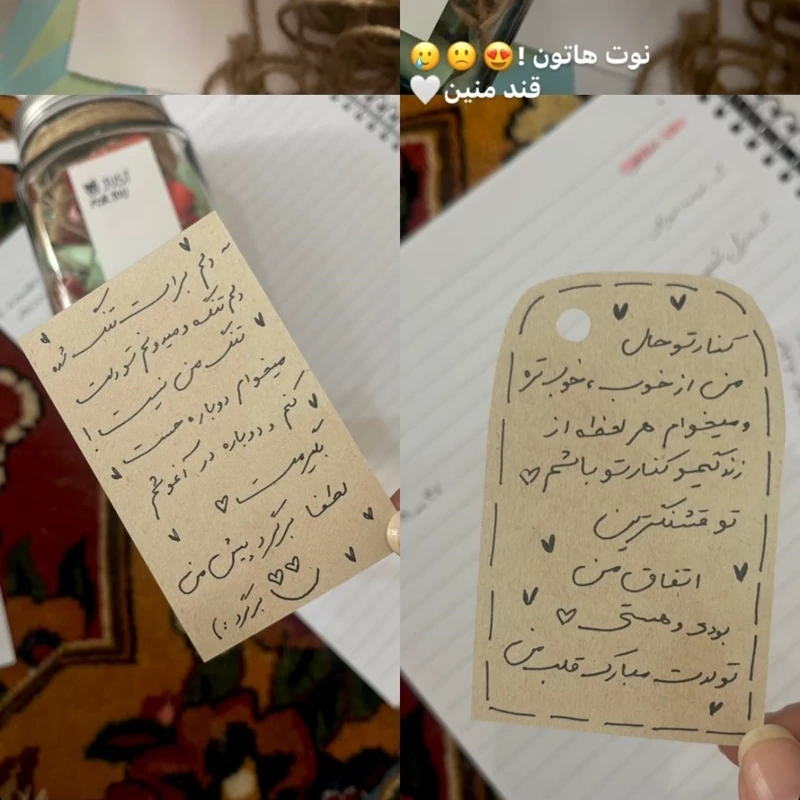 نوت هاتون !😍🙁🥲
قند منین🤍
JUST
FOR YOU
~ دلم برات تنگ شده
دلم تنگه و میدونم تو دلت
تنگ من نیست !
میخوام دوباره حست
کنم و دوباره در آغوشم
بگیرمت ♡
لطفا برگرد پیش من
برگرد :)
کنار تو حال
من از خوب ، خوب تره
و میخوام هر لحظه از
زندگیمو کنار تو باشم ♡
تو قشنگترین
اتفاق من
بودی و هستی ♡
تولدت مبارک قلب من